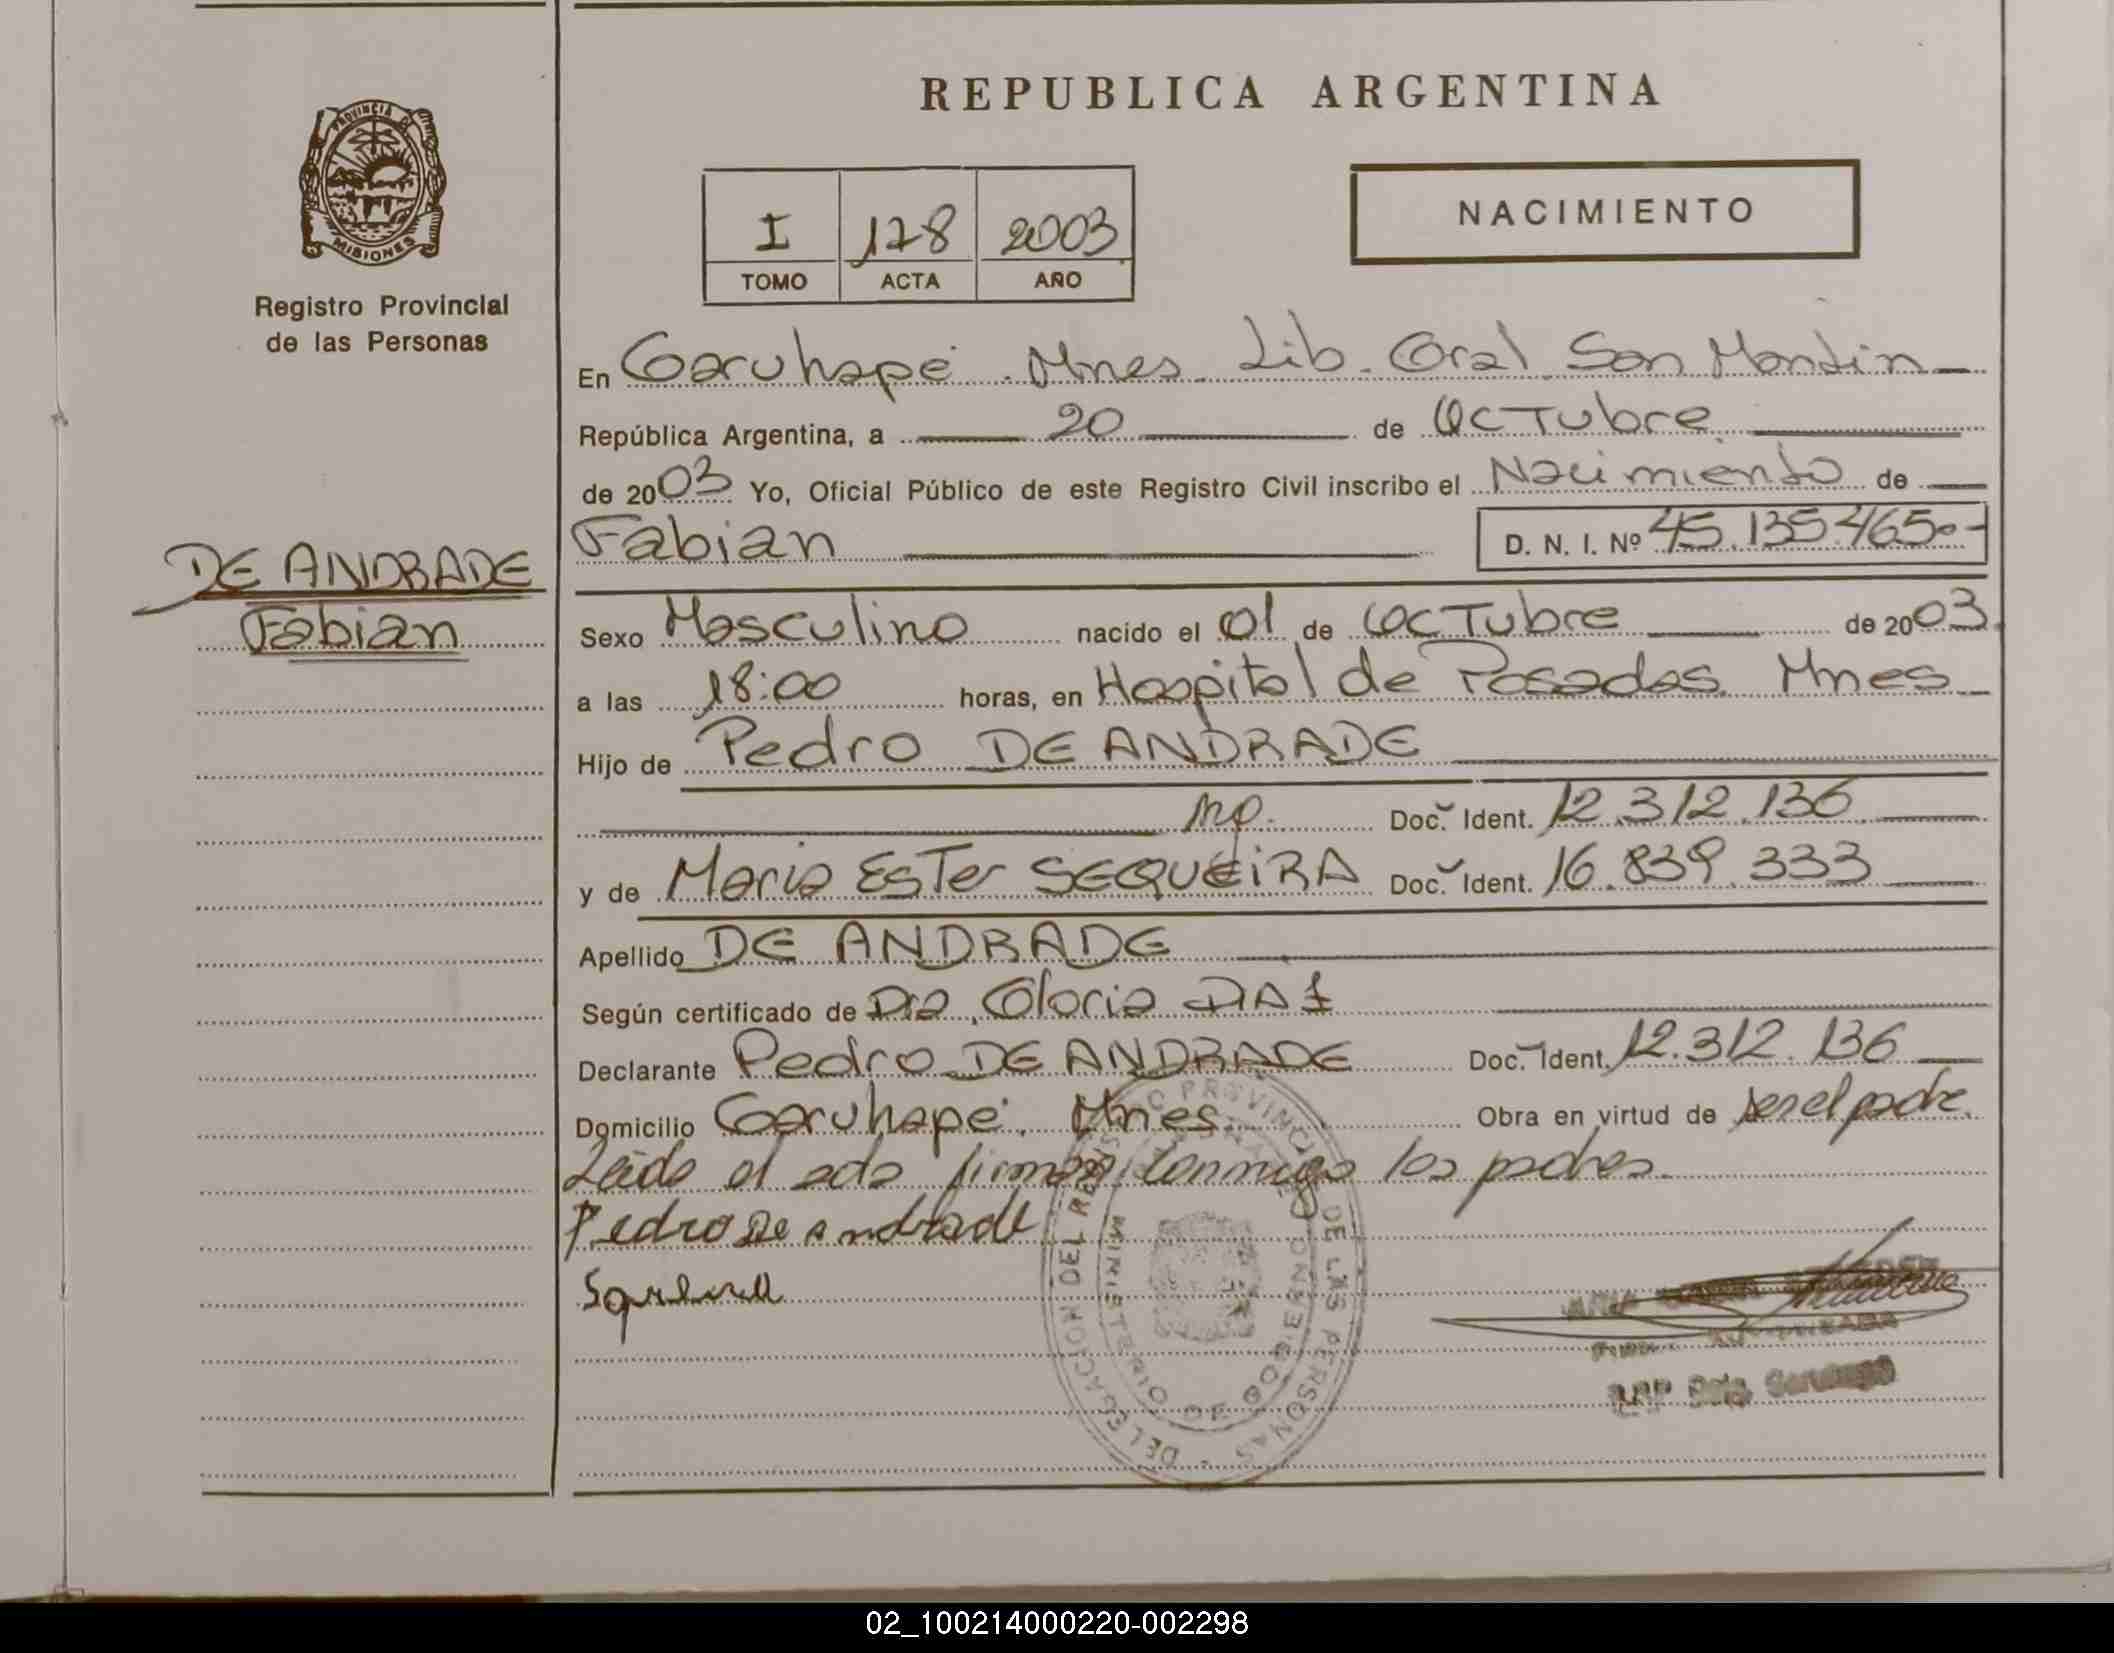 REPUBLICA ARGENTINA
PROVINCIA DE
MISIONES
Registro Provincial
de las Personas
I 178 2003
TOMO ACTA AÑO
NACIMIENTO
En Garuhapé Mnes. Lib. Gral San Martin
República Argentina, a 20 de Octubre
de 2003 Yo, Oficial Público de este Registro Civil inscribo el Nacimiento de
Fabian D. N. I. Nº 45.135.465
DE ANDRADE
Fabian
Sexo Masculino nacido el 01 de Octubre de 2003
a las 18:00 horas, en Hospital de Posadas Mnes
Hijo de Pedro DE ANDRADE
Doc. Ident. 12.312.136
y de Maria Ester SEQUEIRA Doc. Ident. 16.839.333
Apellido DE ANDRADE
Según certificado de Dra. Gloria
Declarante Pedro DE ANDRADE Doc. Ident. 12.312.136
Domicilio Garuhapé. Mnes. Obra en virtud de ser el padre.
Leida el acta firman conmigo los padres.
Pedro De Andrade
DELEGACION DEL REGISTRO PROVINCIAL DE LAS PERSONAS
MINISTERIO DE GOBIERNO
02_100214000220-002298